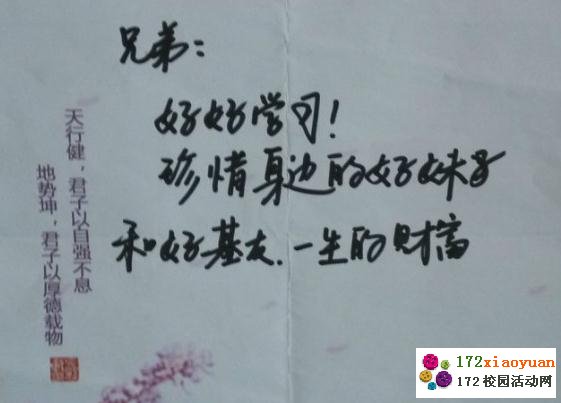 兄弟：
好好学习！
珍惜身边的好妹子
和好基友．一生的财富
天行健，君子以自强不息
地势坤，君子以厚德载物
172xiaoyuan
172校园活动网